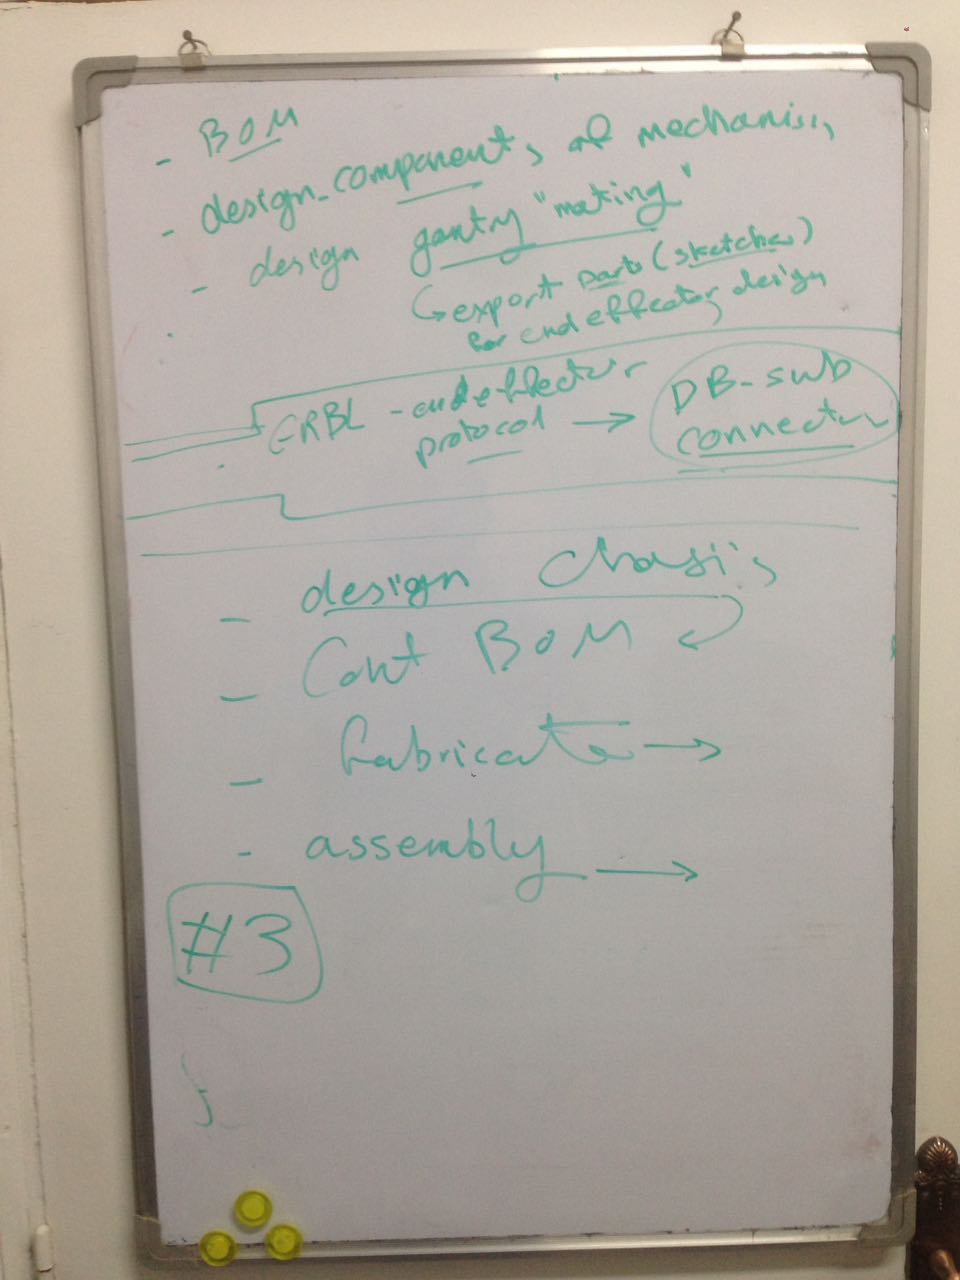 - BOM
- design component, of mechanisi,
- design gantry "mating"
↳ export parts (sketches)
for end effector design
GRBL - end effector
protocol → DB-sub
connector
- design Chasi,
- Cont BOM
- fabricate →
- assembly →
#3